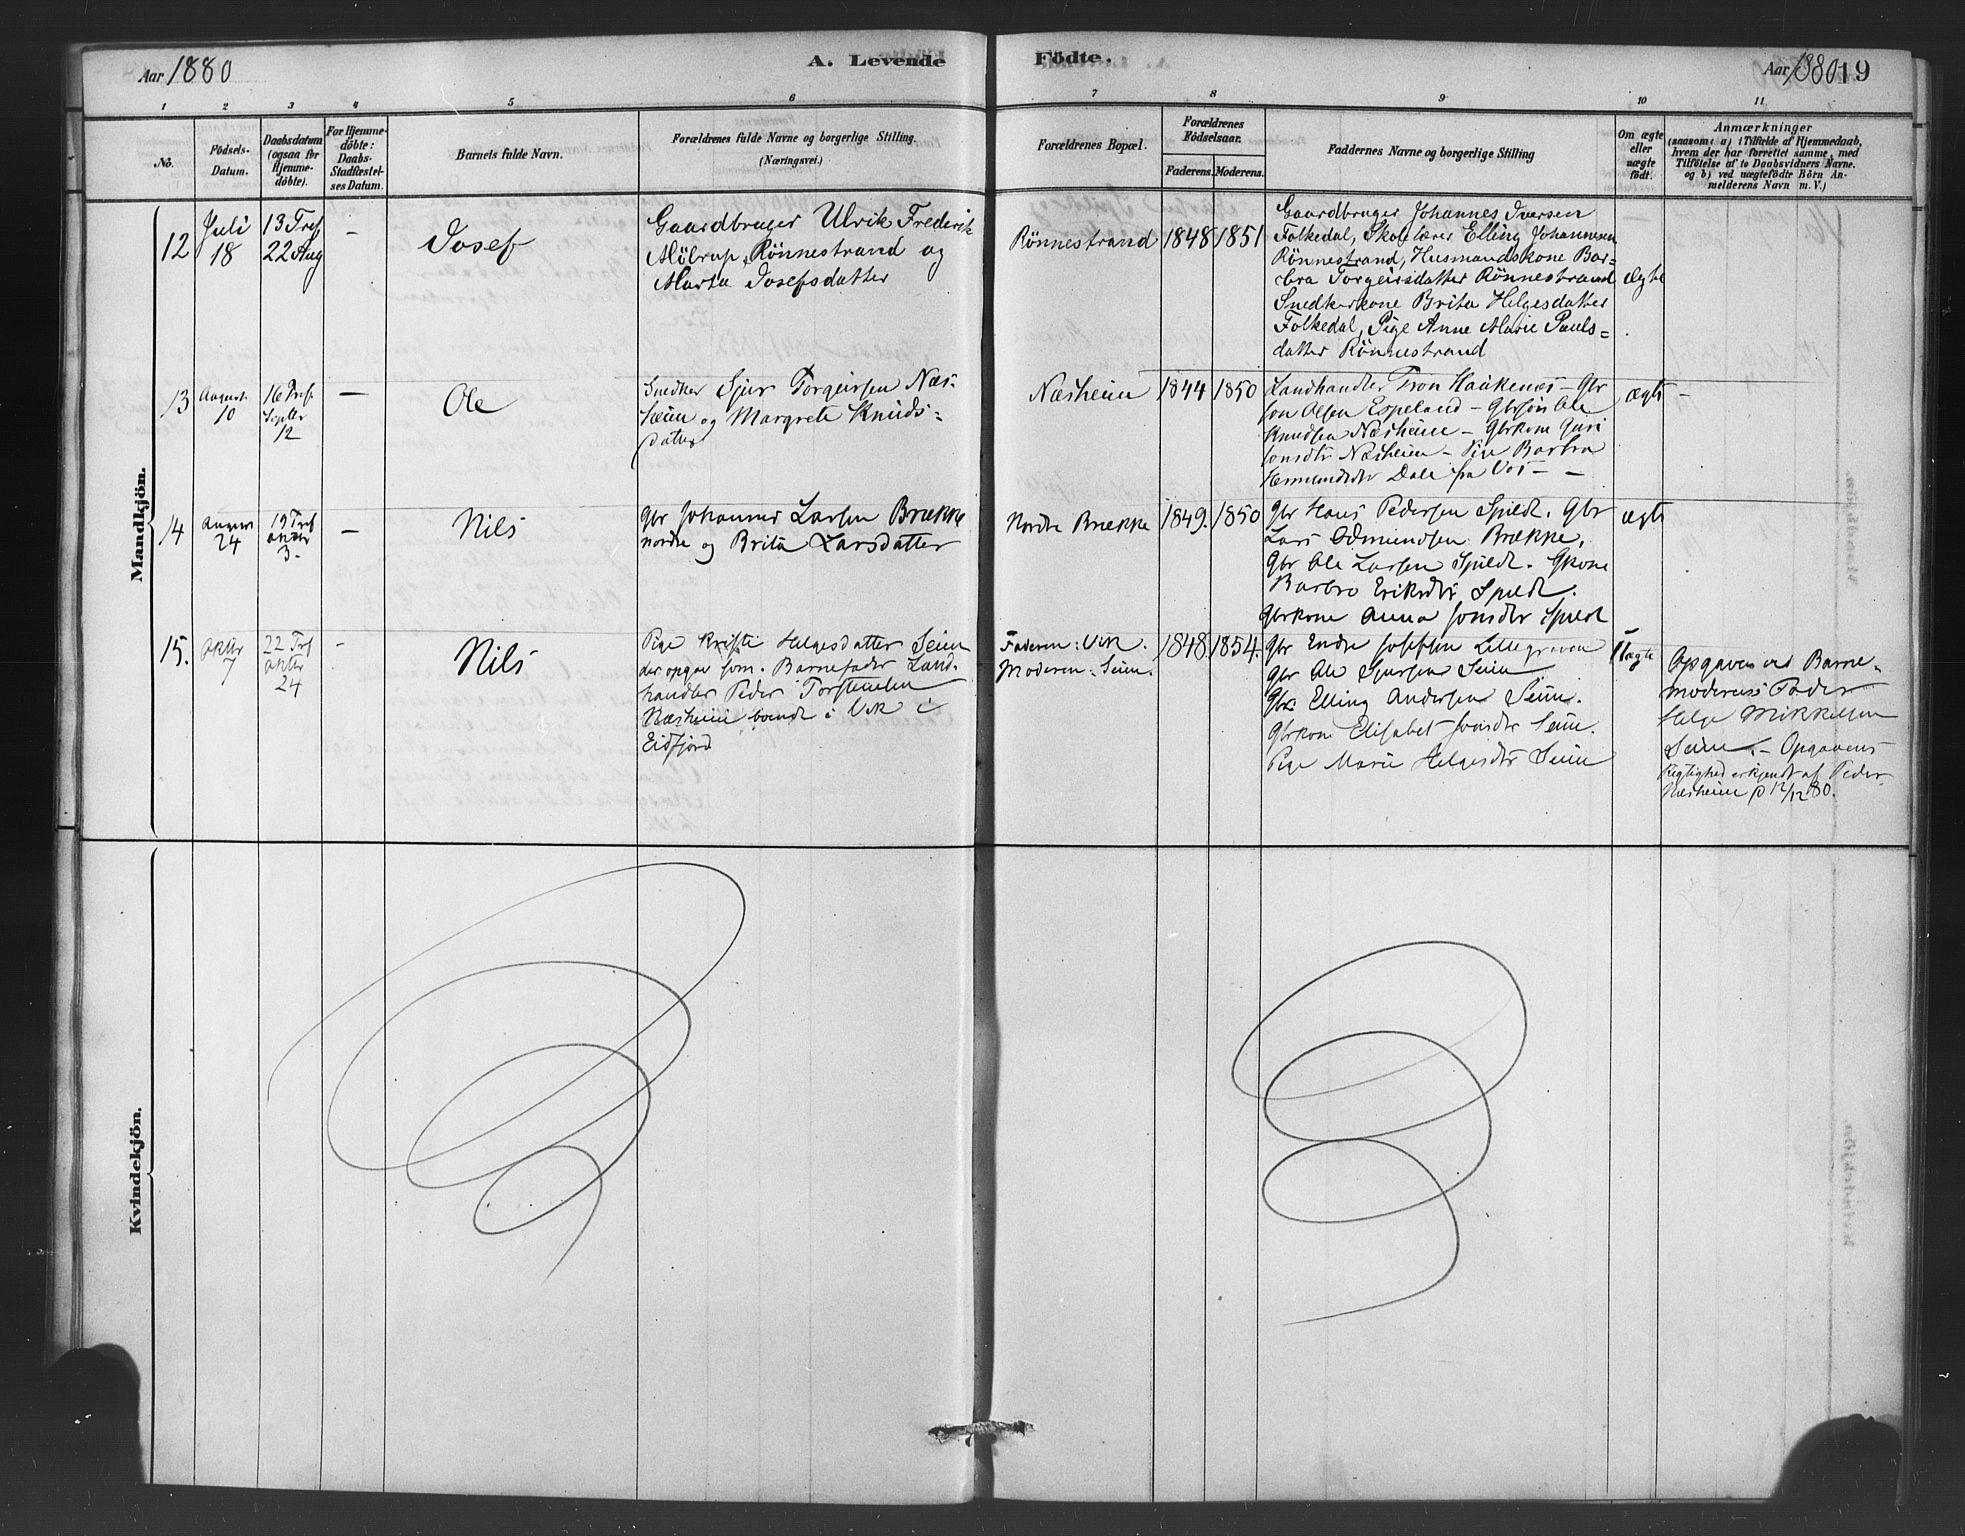 Aar 1880
A. Levende
Födte.
Aar 1880
19
1 2 3 4 5 6 7 8 9 10 11
No.
Födsels-
Datum.
Daabsdatum
(ogsaa for
Hjemme-
döbte).
For Hjemme-
döbte:
Daabs-
Stadfæstel-
ses Datum.
Barnets fulde Navn.
Forældrenes fulde Navne og borgerlige Stilling.
(Næringsvei.)
Forældrenes Bopæl.
Forældrenes
Födselsaar.
Faderens. Moderens.
Faddernes Navne og borgerlige Stilling
Om ægte
eller
uægte
födt.
Anmærkninger
(saasom: a) i Tilfælde af Hjemmedaab,
hvem der har forrettet samme, med
Tilföielse af to Daabsvidners Navne.
og b) ved uægtefödte Börn An-
melderens Navn m. V.)
Mandkjön.
12
Juli
18
13 Tref
22 Aug
-
Josef
Gaardbruger Ulrik Frederik
Möbrup, Rönnestrand og
Marta Josefsdatter
Rönnestrand
1848
1851
Gaardbruger Johannes Iversen
Folkedal, Skolelærer Elling Johannesen
Rönnestrand, Husmandskone Bar=
bra Torgeirsdatter Rönnestrand
Snedkerkone Brita Helgesdatter
Folkedal, Pige Anne Marie Pauls=
datter Rönnestrand
Ægte
13
August
10
16 Tref.
Septbr
12
-
Ole
Snedker Sjur Torgeirsen Næs-
heim og Margrete Knuds=
datter
Næsheim
1844
1850
Landhandler Tron Haukenæs - Gbr
Jon Olsen Espeland - Gbrsön Ole
Knudsen Næsheim - Gbrkone Guri
Jonsdtr Næsheim - Pige Barbra
dtr Dale fra Vos - -
ægte
-
14
August
24
19 Tref
Oktbr
3.
-
Nils
Gbr Johannes Larsen Brække
nordre og Brita Larsdatter
Nordre Brække
1849.
1850
Gbr Hans Pedersen Spildt. Gbr
Lars Odmundsen Brække,
Gbr Ole Larsen Spildt. Gkone
Barbro Eriksdtr Spildt.
Gbrkone Anna Jonsdtr Spildt
ægte
15.
Oktbr
7
22 Tref
Oktbr
24
-
Nils
Pige Kristi Helgesdatter Seim
der opgav som Barnefader Land-
handler Peder Torsteinsen
Næsheim boende i Vik i
Eidfjord
Faderen: Vik.
Moderen: Seim.
1848
1854.
Gbr Endre Josefsen Lillegraven
Gbr Ole Sjursen Seim
Gbr. Elling Andersen Seim.
Gbrkone Elisabet Jonsdtr Seim.
Pige Mari Helgesdtr Seim
Uægte
Opgaven ved Barne-
moderens Fader
Helge Mikkelsen
Seim. - Opgavens
Rigtighed erkjendt af Peder
Næsheim p 12/12 80.
Kvindekjön.